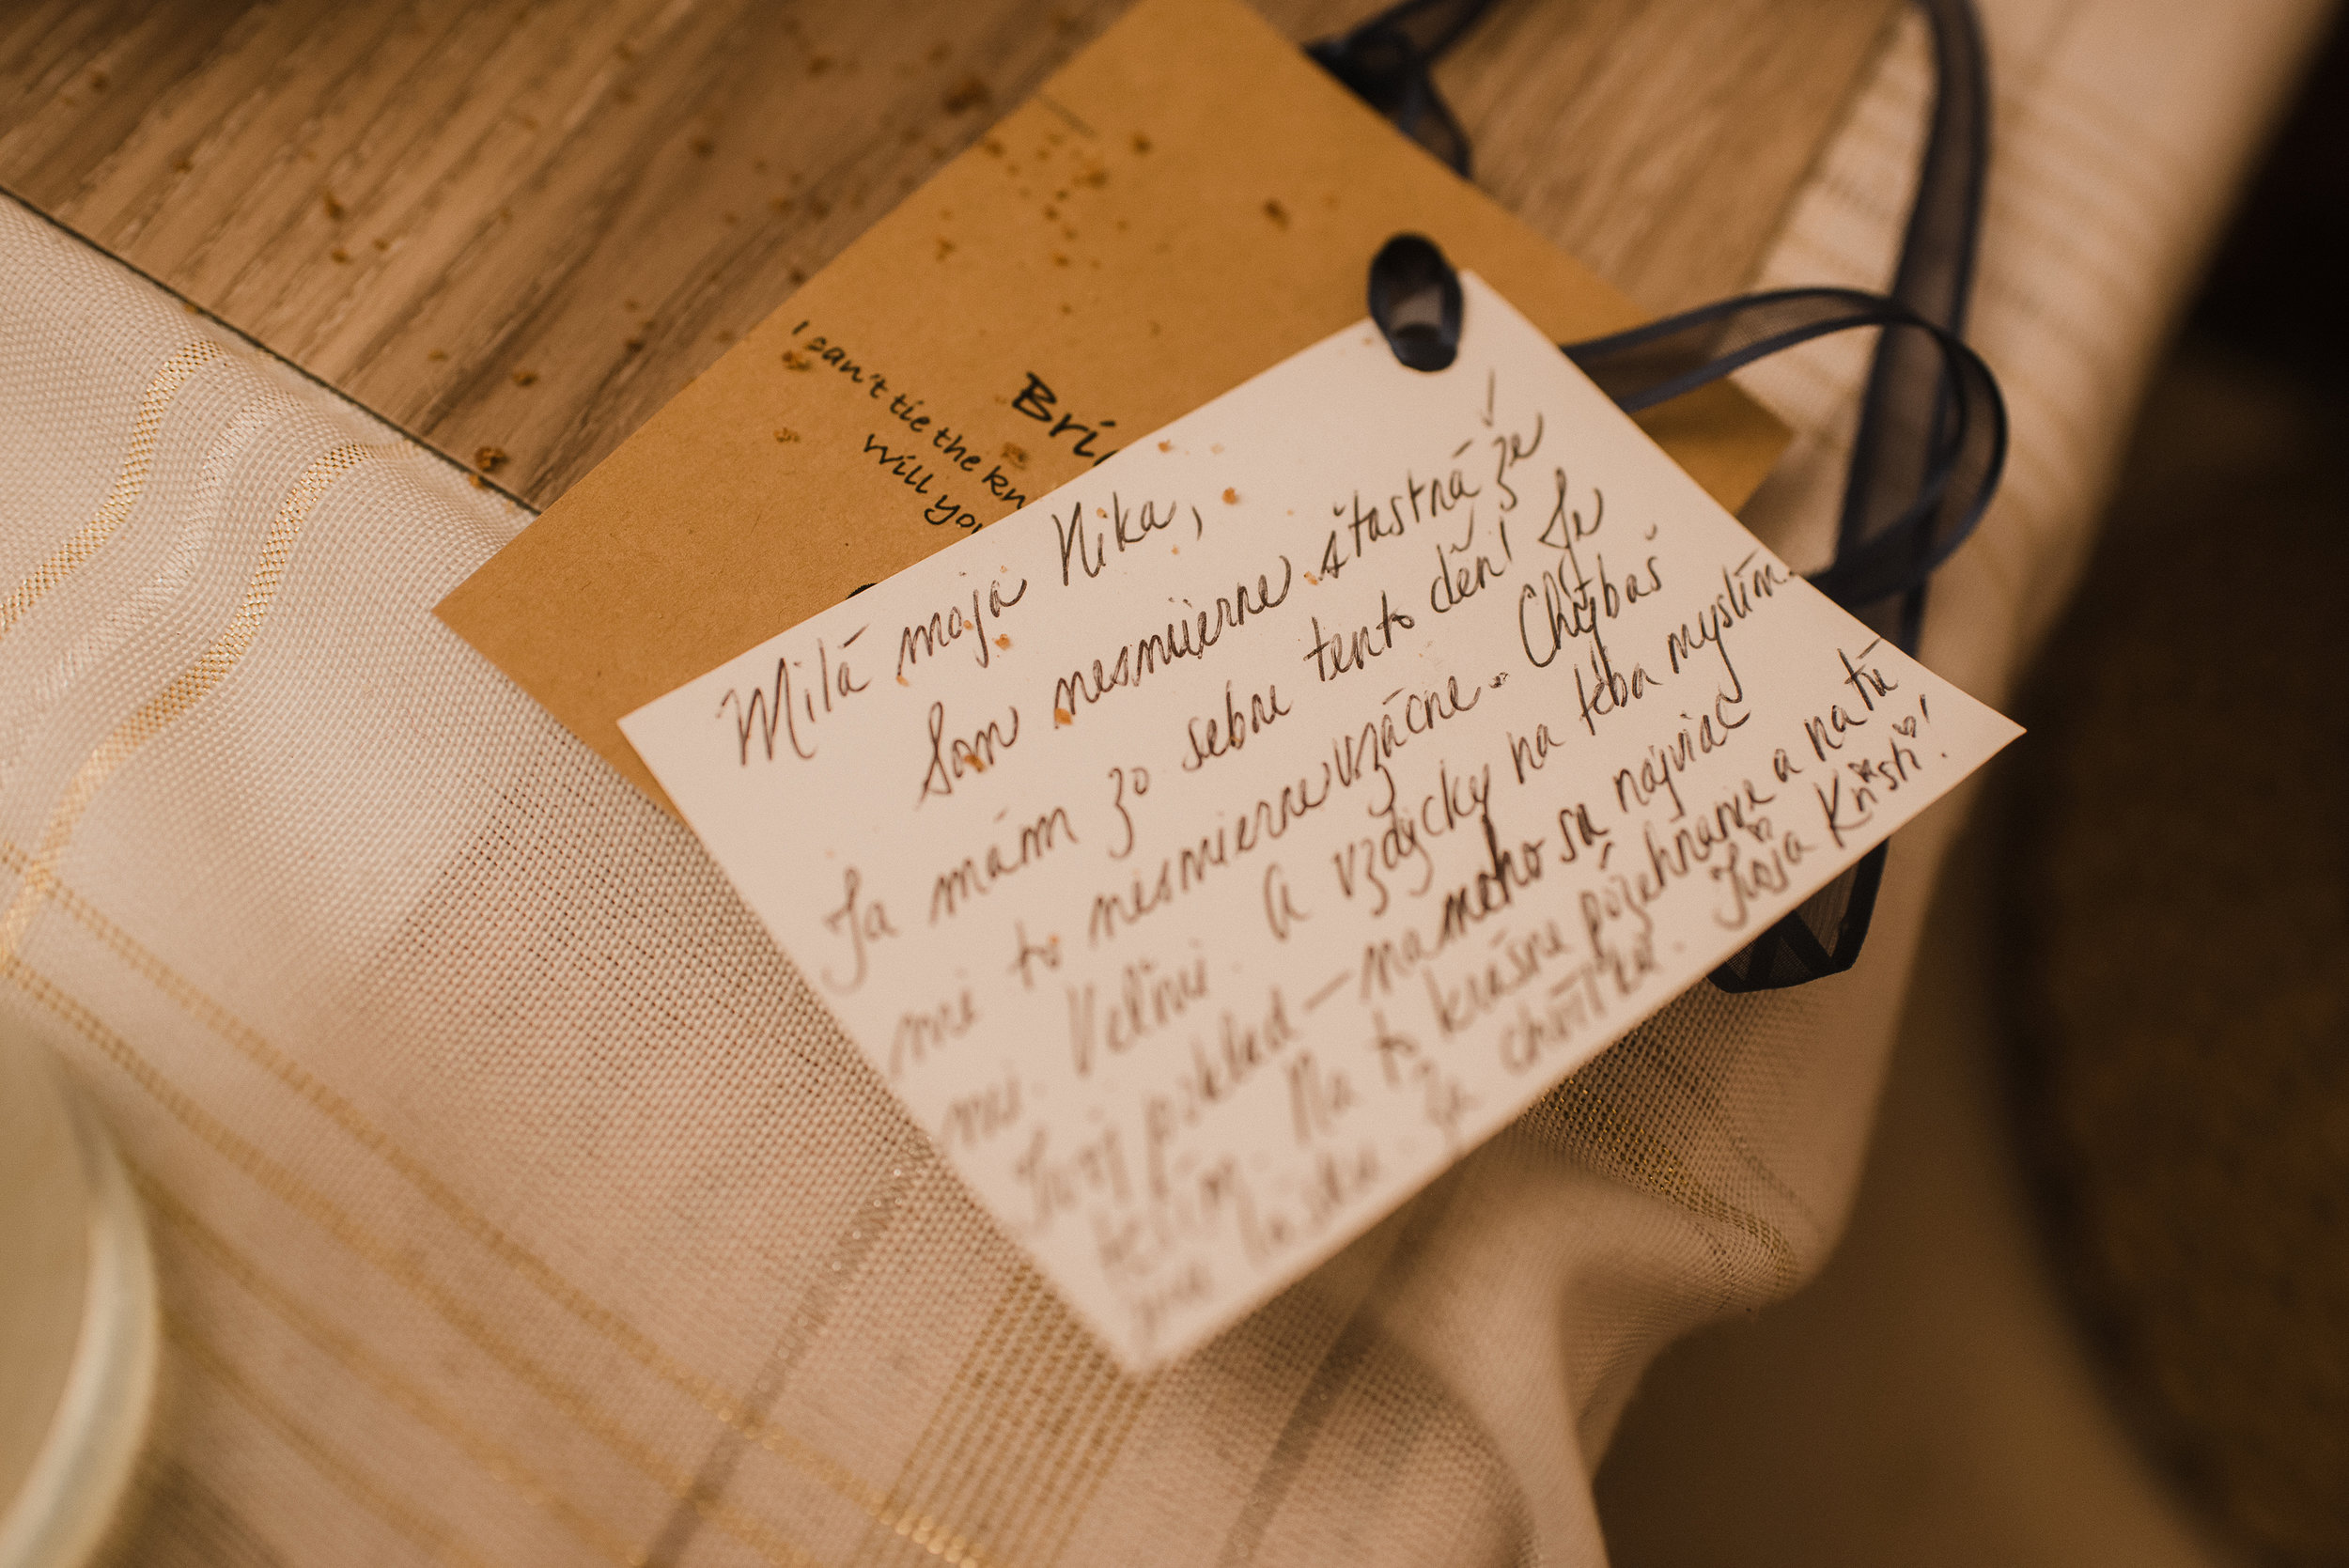 Bri
I can't tie the kn
Will you
Milá moja Nika,
Som nesmierne šťastná že
Ťa mám zo sebou tento deň! Je
mi to nesmierne vzácne. Chýbaš
mi. Veľmi. A vzdycky na teba myslím.
Tvoj poklad – na moho sa najviac
teším. Na to krásne požehnanie a na tú
chvíľku. Tvoja Kristi!